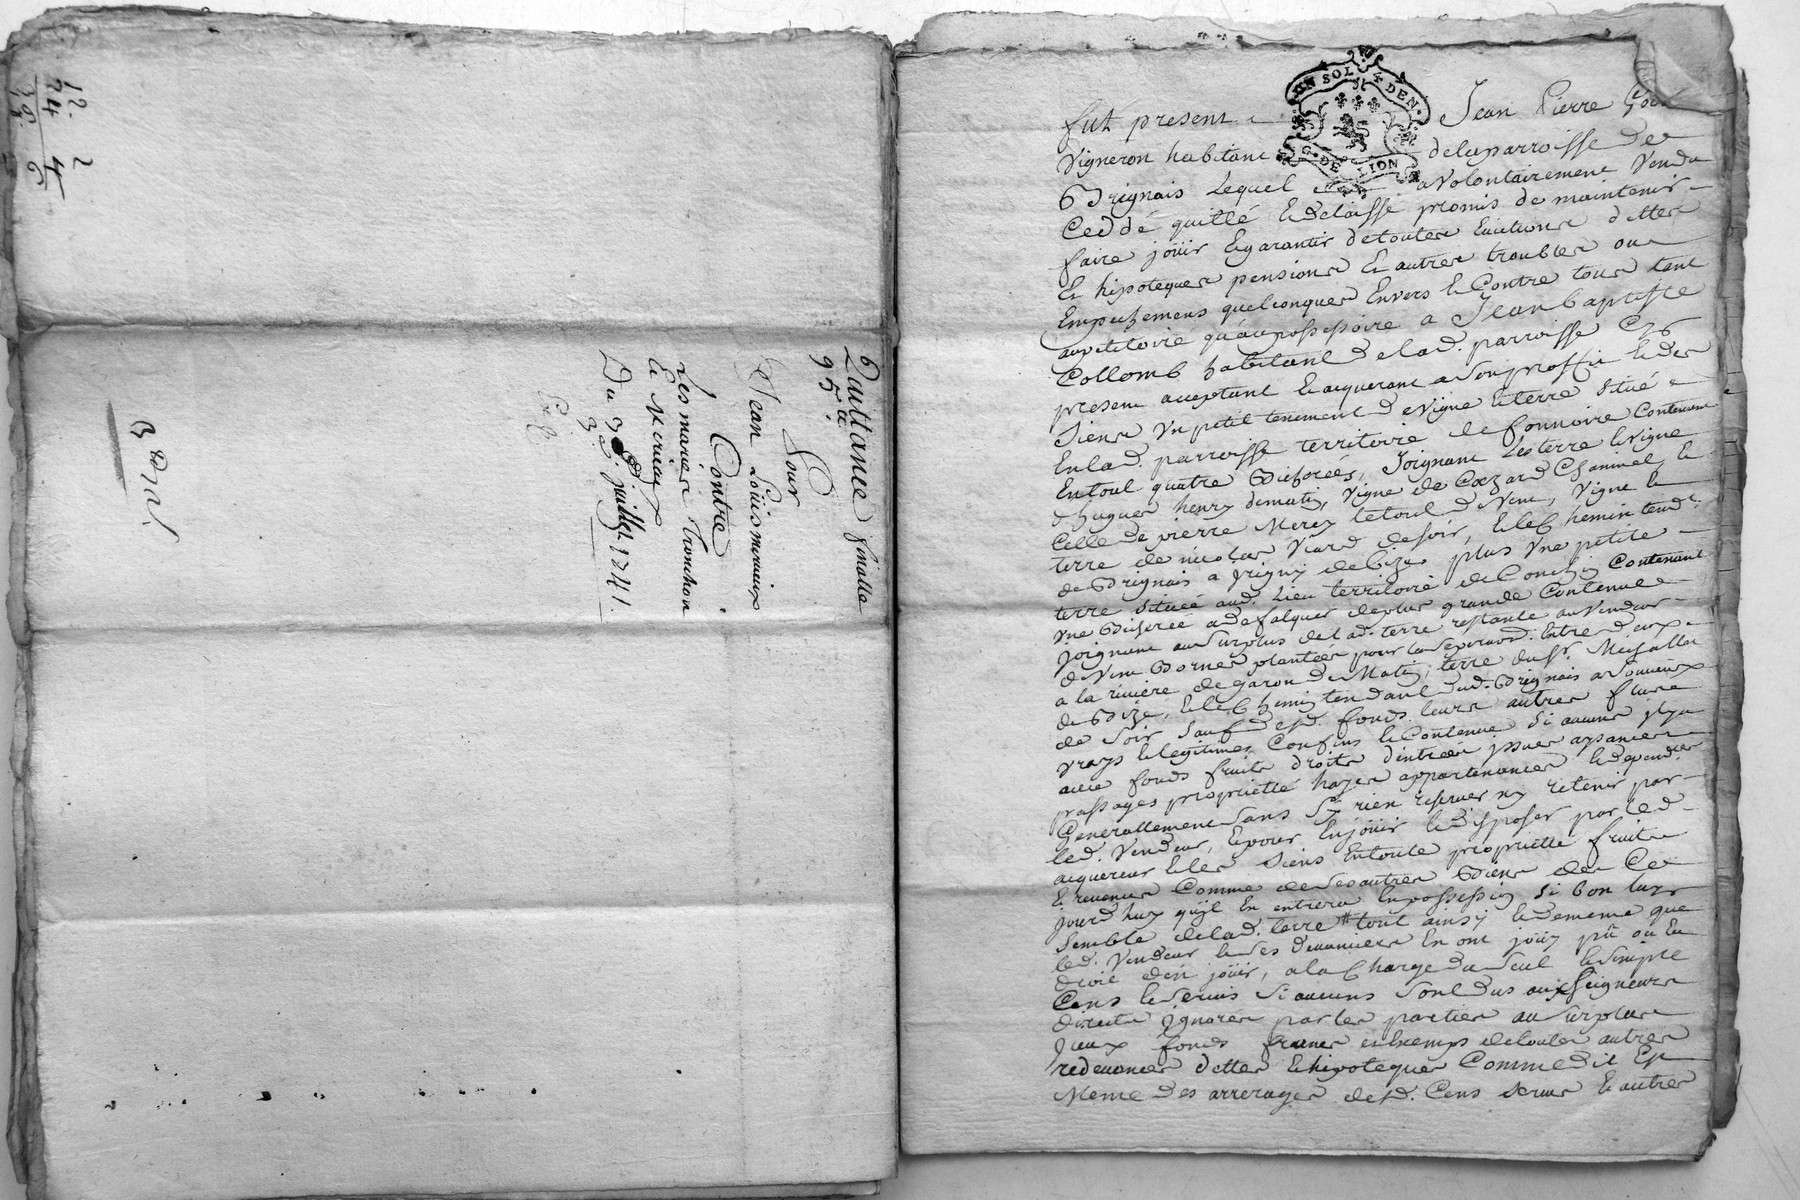 12. 2
24 4
36. 6
Quittance finalle
95 ll
Pour
Jean Loüis meraux
Contre
Les mariés tronchon
et
Du 3e juillet 1711.
UN SOL 4 DEN.
G. DE LION
fut present Jean Pierre
Vigneron habitant de la parroisse de
Brignais Lequel a volontairement Vendu
Ceddé quitté et delaissé promis de maintenir
faire joüir et garantir de toutes Euictions dettes
Et hipoteques pensions Et autres troubles ou
Empechemens quelconques Envers et Contre tous tant
au petitoire qu'au possessoire a Jean baptiste
Collomb habitant de lad. parroisse Cy
present acceptant et acquerant a son proffit et des
Siens Vn petit tenement de Vigne et terre Situé
En lad. parroisse territoire de Contenant
En tout quatre Bicherées, Joignant Les terre et vigne
de hugues henry de matin, Vigne de Cezard Chaninel et
Celle de pierre Merey le tout de Vent, Vigne et
terre de nicolas Viard de soir, et le Chemin tendt
de Brignais a Jrigny de Bize, plus Vne petite
terre Situeé aud. Lieu territoire de Contenant
Vne Bicherée a defalquer de plus grande Contenue
Joignant au Surplus de lad. terre restante au Vendeur
de Vent Bornes plantées pour la Entre deux
a la riviere de garon de Matin, terre du Sr.
de Bize, et le Chemin tendant dud. Brignais a Soucieux
de Soir Sauf desd. fonds leurs autres
Vrays et legitimes Confins et Contenue Si aucuns
auec fonds fruits droits d'entrées jssues aysances
passages proprietté hayes appartenances et depend.
Generallement Sans Sy rien reserver ny retenir par
led. Vendeur, et pour En joüir et disposer par led.
acquereur et les Siens En toute proprietté fruits
Et reuenus Comme de Ses autres Biens des Ce
jourd'huy qu'il En entrera En possession Si bon luy
Semble de lad. terre # tout ainsy et de meme que
led. Vendeur et Ses deuanciers En ont joüy pû ou Eu
droit d'en joüir, a la Charge du Seul et Simple
Cens et Seruis Si aucuns Sont dus aux Seigneurs
directs Jgnorés par les parties au Surplus
Jceux fonds francs et exemps de toutes autres
redeuances dettes et hipoteques Comme dit Est
Meme des arrerages desd. Cens Seruis et autres